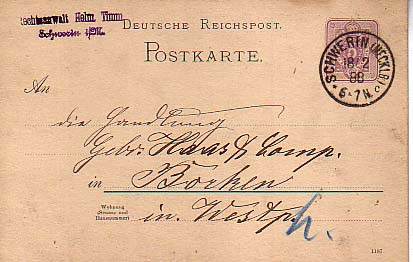 Rechtsanwalt Helm. Timm
Schwerin i/M.
DEUTSCHE REICHSPOST.
POSTKARTE.
SCHWERIN (MECKLB)
18 2
88
6-7N.
An
die Handlung
Gebr. Haas & Comp.
in Borken
in Westph.
Wohnung
(Strasse und
Hausnummer)
1187